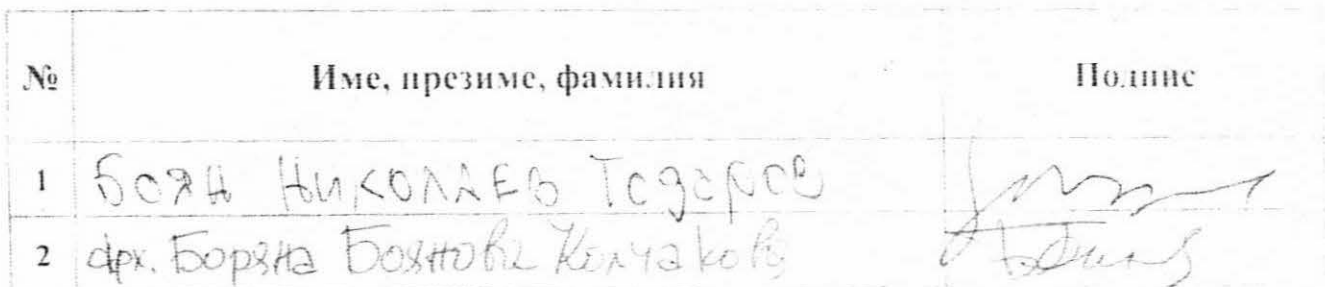 № Име, презиме, фамилия Подпис
1 Боян Николаев Тодоров
2 арх. Боряна Боянова Колчакова